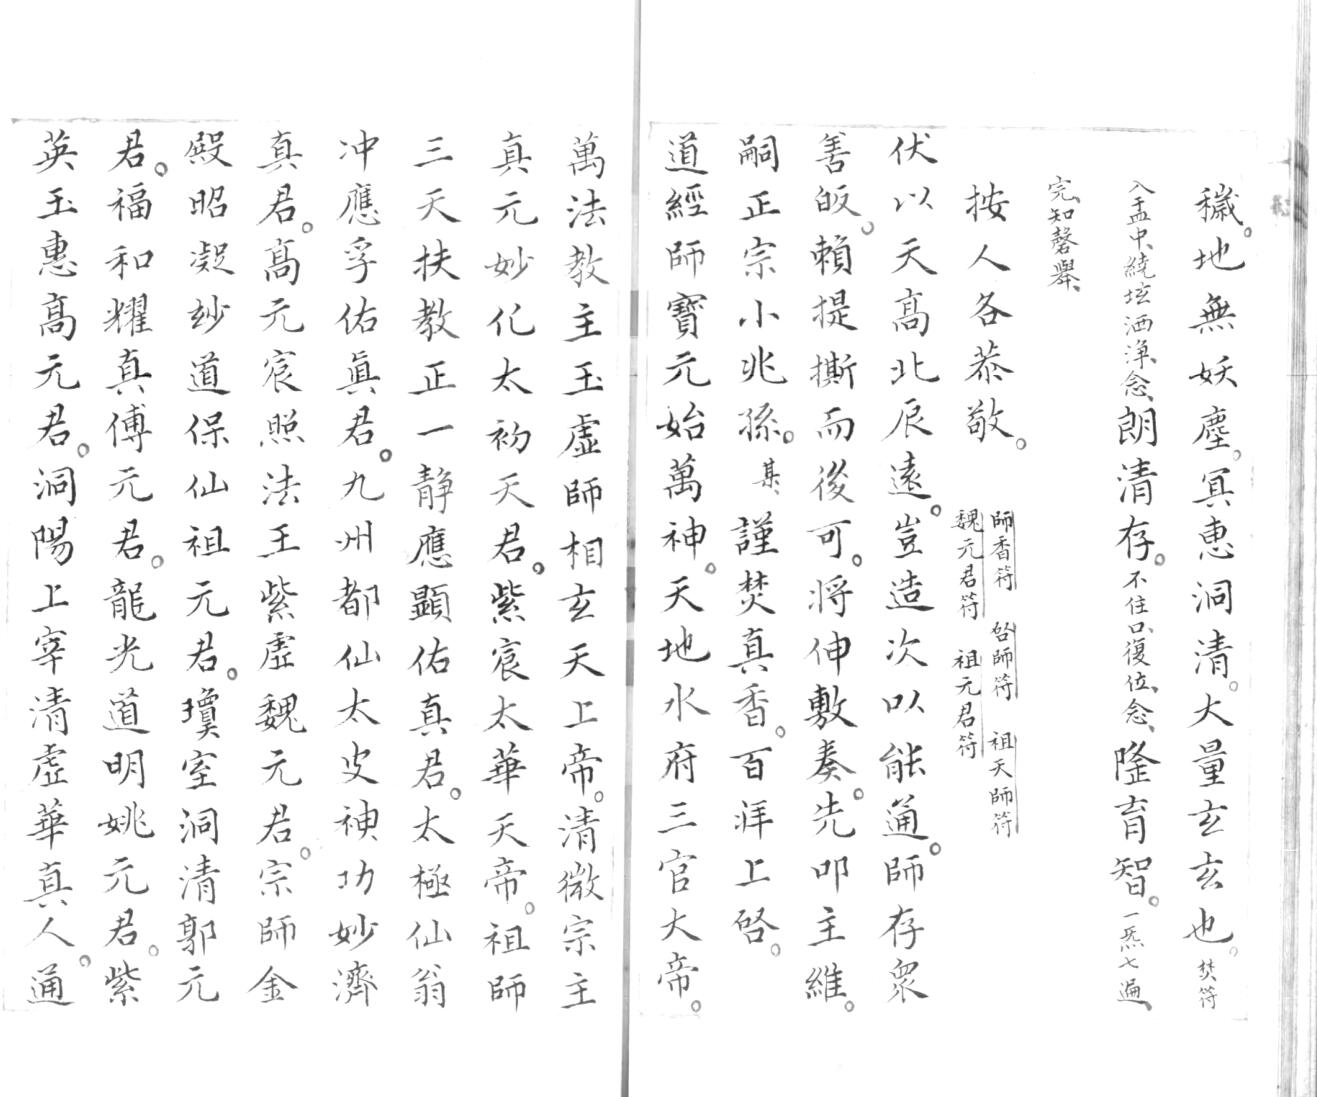 穢。地無妖塵。冥惠洞清。大量玄玄也。焚符
入盂中、繞坛洒淨、念、朗清存。不住口、復位、念、隆育智。一炁七遍、
完、知磬舉、
按人各恭敬。師香符 啓師符 祖天師符
魏元君符 祖元君符
伏以天高北辰遠。豈造次以能通。師存衆
善皈。賴提撕而後可。將伸敷奏。先叩主維。
嗣正宗小兆孫。某、謹焚真香。百拜上啓。
道經師寶元始萬神。天地水府三官大帝。
萬法教主玉虛師相玄天上帝。清微宗主
真元妙化太初天君。紫宸太華天帝。祖師
三天扶教正一靜應顯佑真君。太極仙翁
冲應孚佑眞君。九州都仙太史神功妙濟
真君。高元宸照法王紫虛魏元君。宗師金
殿昭凝妙道保仙祖元君。瓊室洞清郭元
君。福和耀真傅元君。龍光道明姚元君。紫
英玉惠高元君。洞陽上宰清虛華真人。通